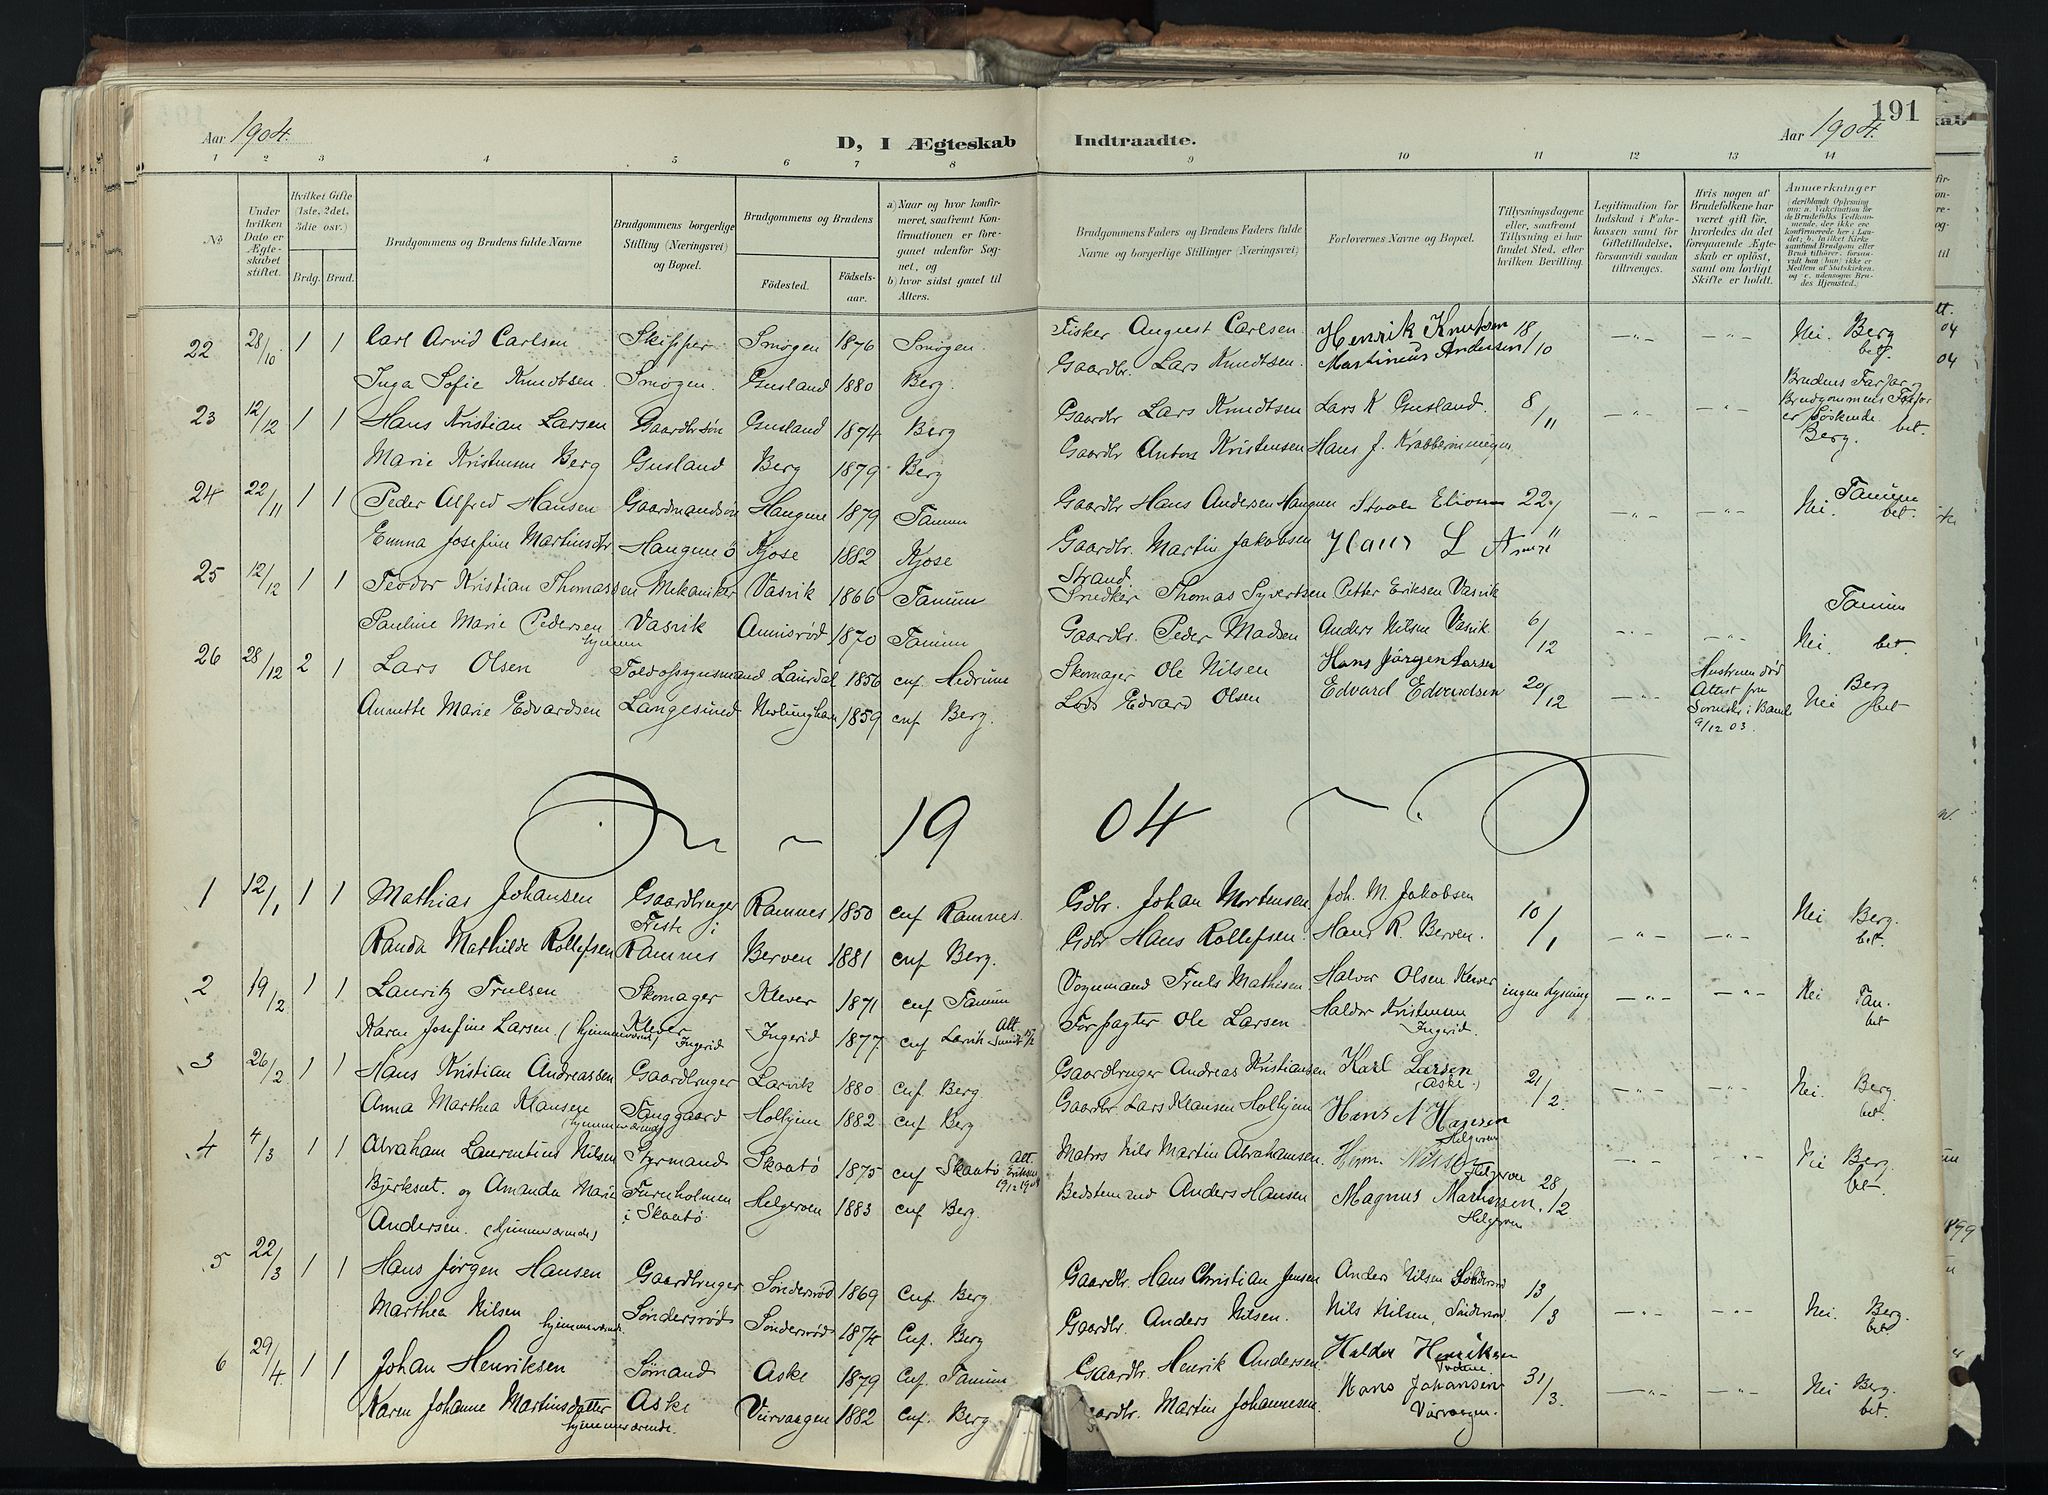 191
Aar 1904.
D, I Ægteskab
Indtraadte.
Aar 1904.
1 2 3 4 5 6 7 8 9 10 11 12 13 14
No
Under hvilken Dato er Ægteskabet stiftet.
Hvilket Gifte (1ste, 2det, 3die osv.)
Brdg. Brud.
Brudgommens og Brudens fulde Navne
Brudgommens borgerlige Stilling (Næringsvei) og Bopæl.
Brudgommens og Brudens
Fødested.
Fødselsaar.
a) Naar og hvor konfirmeret, saafremt Konfirmationen er foregaaet udenfor Sognet, og
b) hvor sidst gaaet til Alters.
Brudgommens Faders og Brudens Faders fulde Navne og borgerlige Stillinger (Næringsvei)
Forlovernes Navne og Bopæl.
Tillysningsdagene eller, saafremt Tillysning ei har fundet Sted, efter hvilken Bevilling.
Legitimation for Indskud i Enkekassen samt for Giftetilladelse, forsaavidt saadan tiltrænges.
Hvis nogen af Brudefolkene har været gift før, hvorledes da det foregaaende Ægteskab er opløst, samt om lovligt Skifte er holdt.
Anmærkninger
22 28/10 1 1 Carl Arvid Carlsen Skipper Smøgen 1876 Smøgen Fisker August Carlsen Henrik Knutsen 18/10 —„— —„— Nei. Berg bet.
Inga Sofie Knudtsen Smøgen Gusland 1880 Berg. Gaardbr. Lars Knudtsen. Martinius Andersen
23 12/12 1 1 Hans Kristian Larsen Gaardbrsøn Gusland 1874 Berg Gaardbr Lars Knudtsen Lars K Gusland. 8/11 —„— —„— Brudens Farfar og Brudgommens Farfar er Søskende bet. Berg.
Marie Kristensen Berg Gusland Berg 1879 Berg Gaardbr Anton Kristensen Hans J.
24 22/11 1 1 Peder Alfred Hansen Gaardmandsøn Haugene 1879 Tanum Gaardbr Hans Andersen Haugene 22 —„— —„— Nei. Tanum bet.
Emma Josefine Martinsdtr Haugene Kjose 1882 Kjose Gaardbr. Martin Jakobsen Hans L
Strand
25 12/12 1 1 Teodor Kristian Thomassen Mekaniker Vasvik 1866 Tanum Snedker Thomas Syvertsen Petter Eriksen Vasvik
Pauline Marie Pedersen Vasvik Annisrød 1870 Tanum Gaardbr. Peder Madsen Anders Nilsen Vasvik 6/12 —„— —„— Nei. Tanum bet.
26 28/12 2 1 Lars Olsen Toldopsynsmand Laurdal 1856 cnf Hedrum Skomager Ole Nilsen Hans Jørgen Larsen
Annette Marie Edvardsen Langesund Nevlunghavn 1859 cnf Berg. Lods Edvard Olsen Edvard Edvardsen 20/12 —„— Hustruen død Attest fra i Bamle 9/12 03. Nei Berg bet
19 04
1 12/1 1 1 Mathias Johansen Gaardbruger Ramnes 1850 cnf Ramnes. Gdbr. Johan Mortensen Joh. M. Jakobsen 10/1 —„— —„— Nei Berg. bet.
Randa Mathilde Rollefsen Feste i Ramnes Berven 1881 cnf Berg. Gdbr Hans Rollefsen. Hans R. Berven.
2 19/2 1 1 Lauritz Trulsen Skomager Klever 1871 cnf Tanum Vognmand Truls Mathisen Halvor Olsen Klever ingen Lysning —„— —„— Nei Tan. bet
Karen Josefine Larsen (hjemmeværende) Klever Ingerid Ingerid 1877. cnf Larvik Att. Forpagter Ole Larsen Haldor Kristensen Ingerid.
3 26/2 1 1 Hans Kristian Andreassen Gaardbruger Larvik 1880 cnf. Berg. Gaardbruger Andreas Kristiansen Karl Larsen (Aske.) 21/2. —„— —„— Nei. Berg. bet.
Anna Marthea Klausen hjemmeværende Fauggaard Holhjem 1882 cnf Berg Gaardbr. Lars Klausen Holhjem Hans N Hansen Helgeroen
4 4/3 1 1 Abraham Laurentius Nilsen Styrmand Skaatø 1875 cnf Skaatø Att. Eriksen Matros Nils Martin Abrahamsen. Herm. Nilsen Helgeroen 28/2 —„— —„— Nei Berg. bet.
Bjerksnt. og Amanda Marie Furuholmen Helgeroen 1883 cnf Berg. Bedstemand Anders Hansen Magnus Mathisen.
Andersen. (hjemmeværende) i Skaatø. Helgeroen
5 22/3 1 1 Hans Jørgen Hansen Gaardbruger Søndersrød 1869 cnf. Berg Gaardbr. Hans Christian Jensen Anders Nilsen Søndersrød 13/3 —„— —„— Nei. Berg. bet
Marthea Nilsen hjemmeværende. Søndersrød Søndersrød 1874 Cnf. Berg Gaardbr. Anders Nilsen. Nils Nilsen, Søndersrød
6 29/4. 1 1 Johan Henriksen Sømand Aske 1879 Cnf. Tanum Gaardbr. Henrik Andersen Haldor Henriksen 31/3. —„— —„— Nei Berg. bet.
Karen Johanne Martinsdatter hjemmeværende. Aske Virvaagen 1882 Cnf. Berg Gaardbr. Martin Johannesen. Hans Johansen Virvaagen.